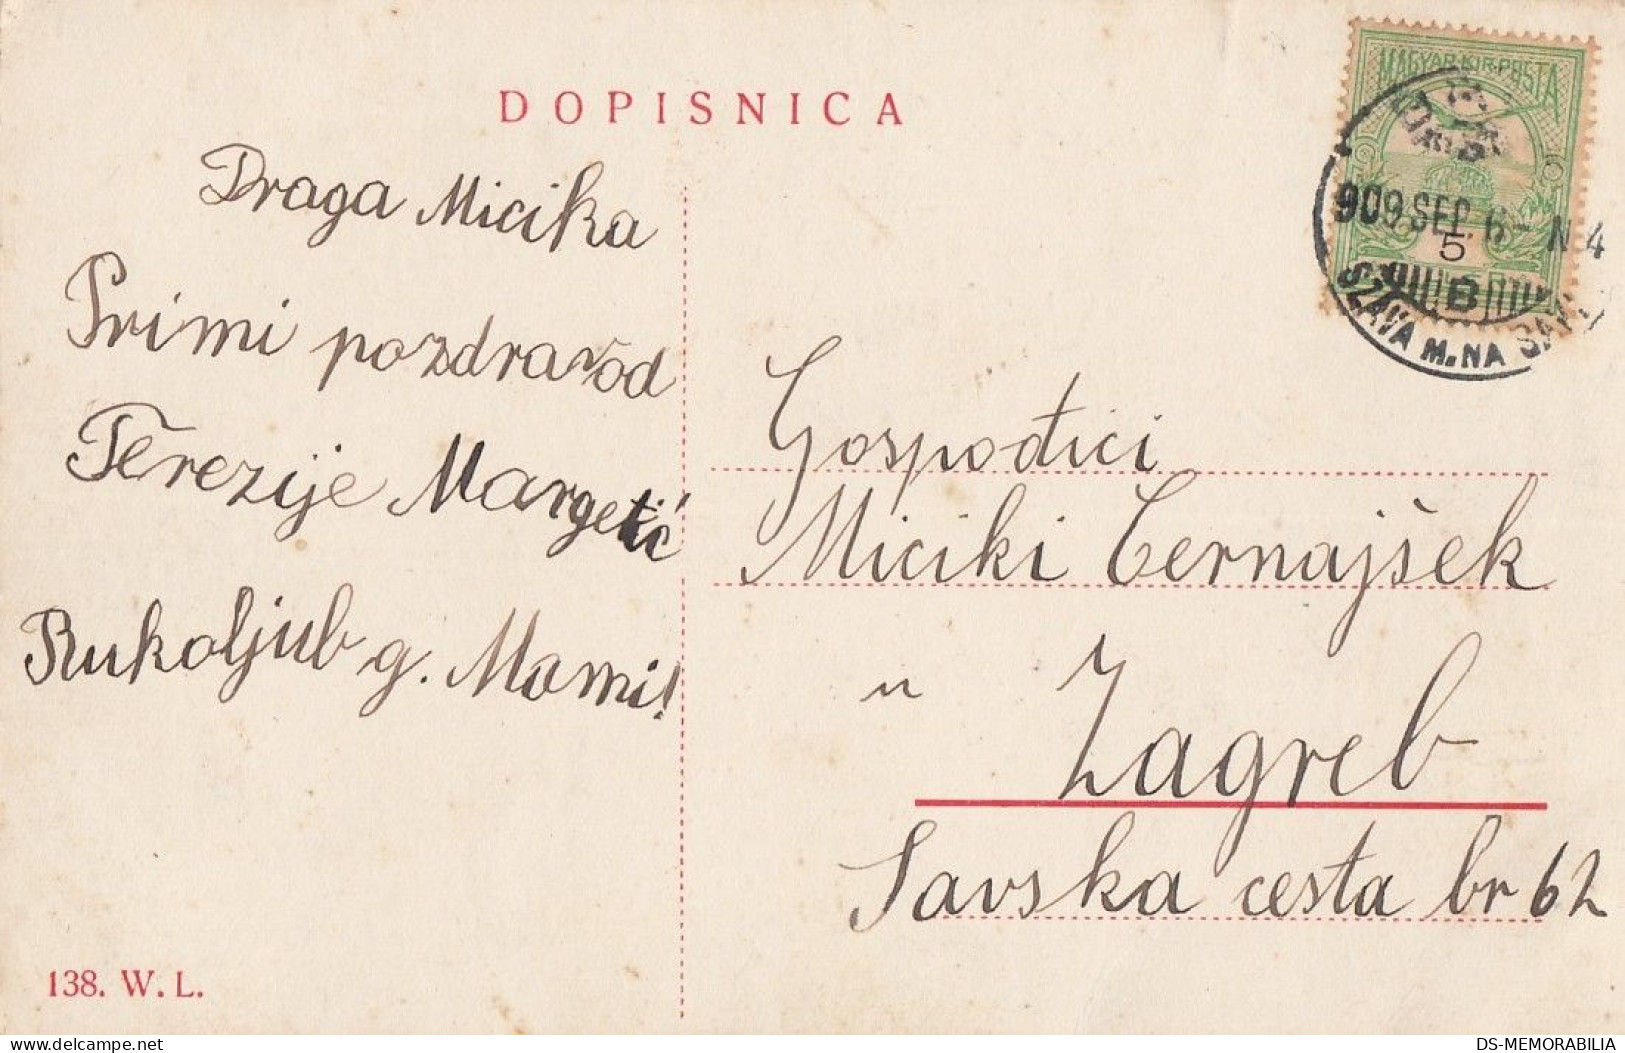 DOPISNICA
MAGYAR KIR. POSTA
909 SEP. 6 - N 4
5
B
SZÁVA M. NA SAVI
Draga Micika
Primi pozdrav od
Terezije Margetić
Rukoljub g. Mami!
Gospođici
Miciki Černajšek
u Zagreb
Savska cesta br 62
138. W. L.
delcampe.net
DS-MEMORABILIA